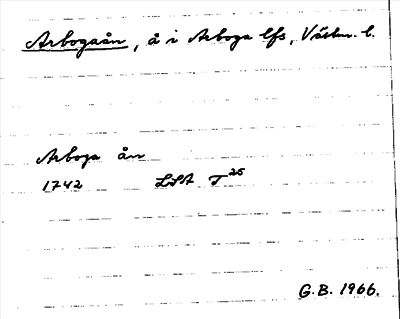 Arbogaån, å i Arboga lfs, Västm. l.
Arboga ån
1742 LSA T 25
G.B. 1966.